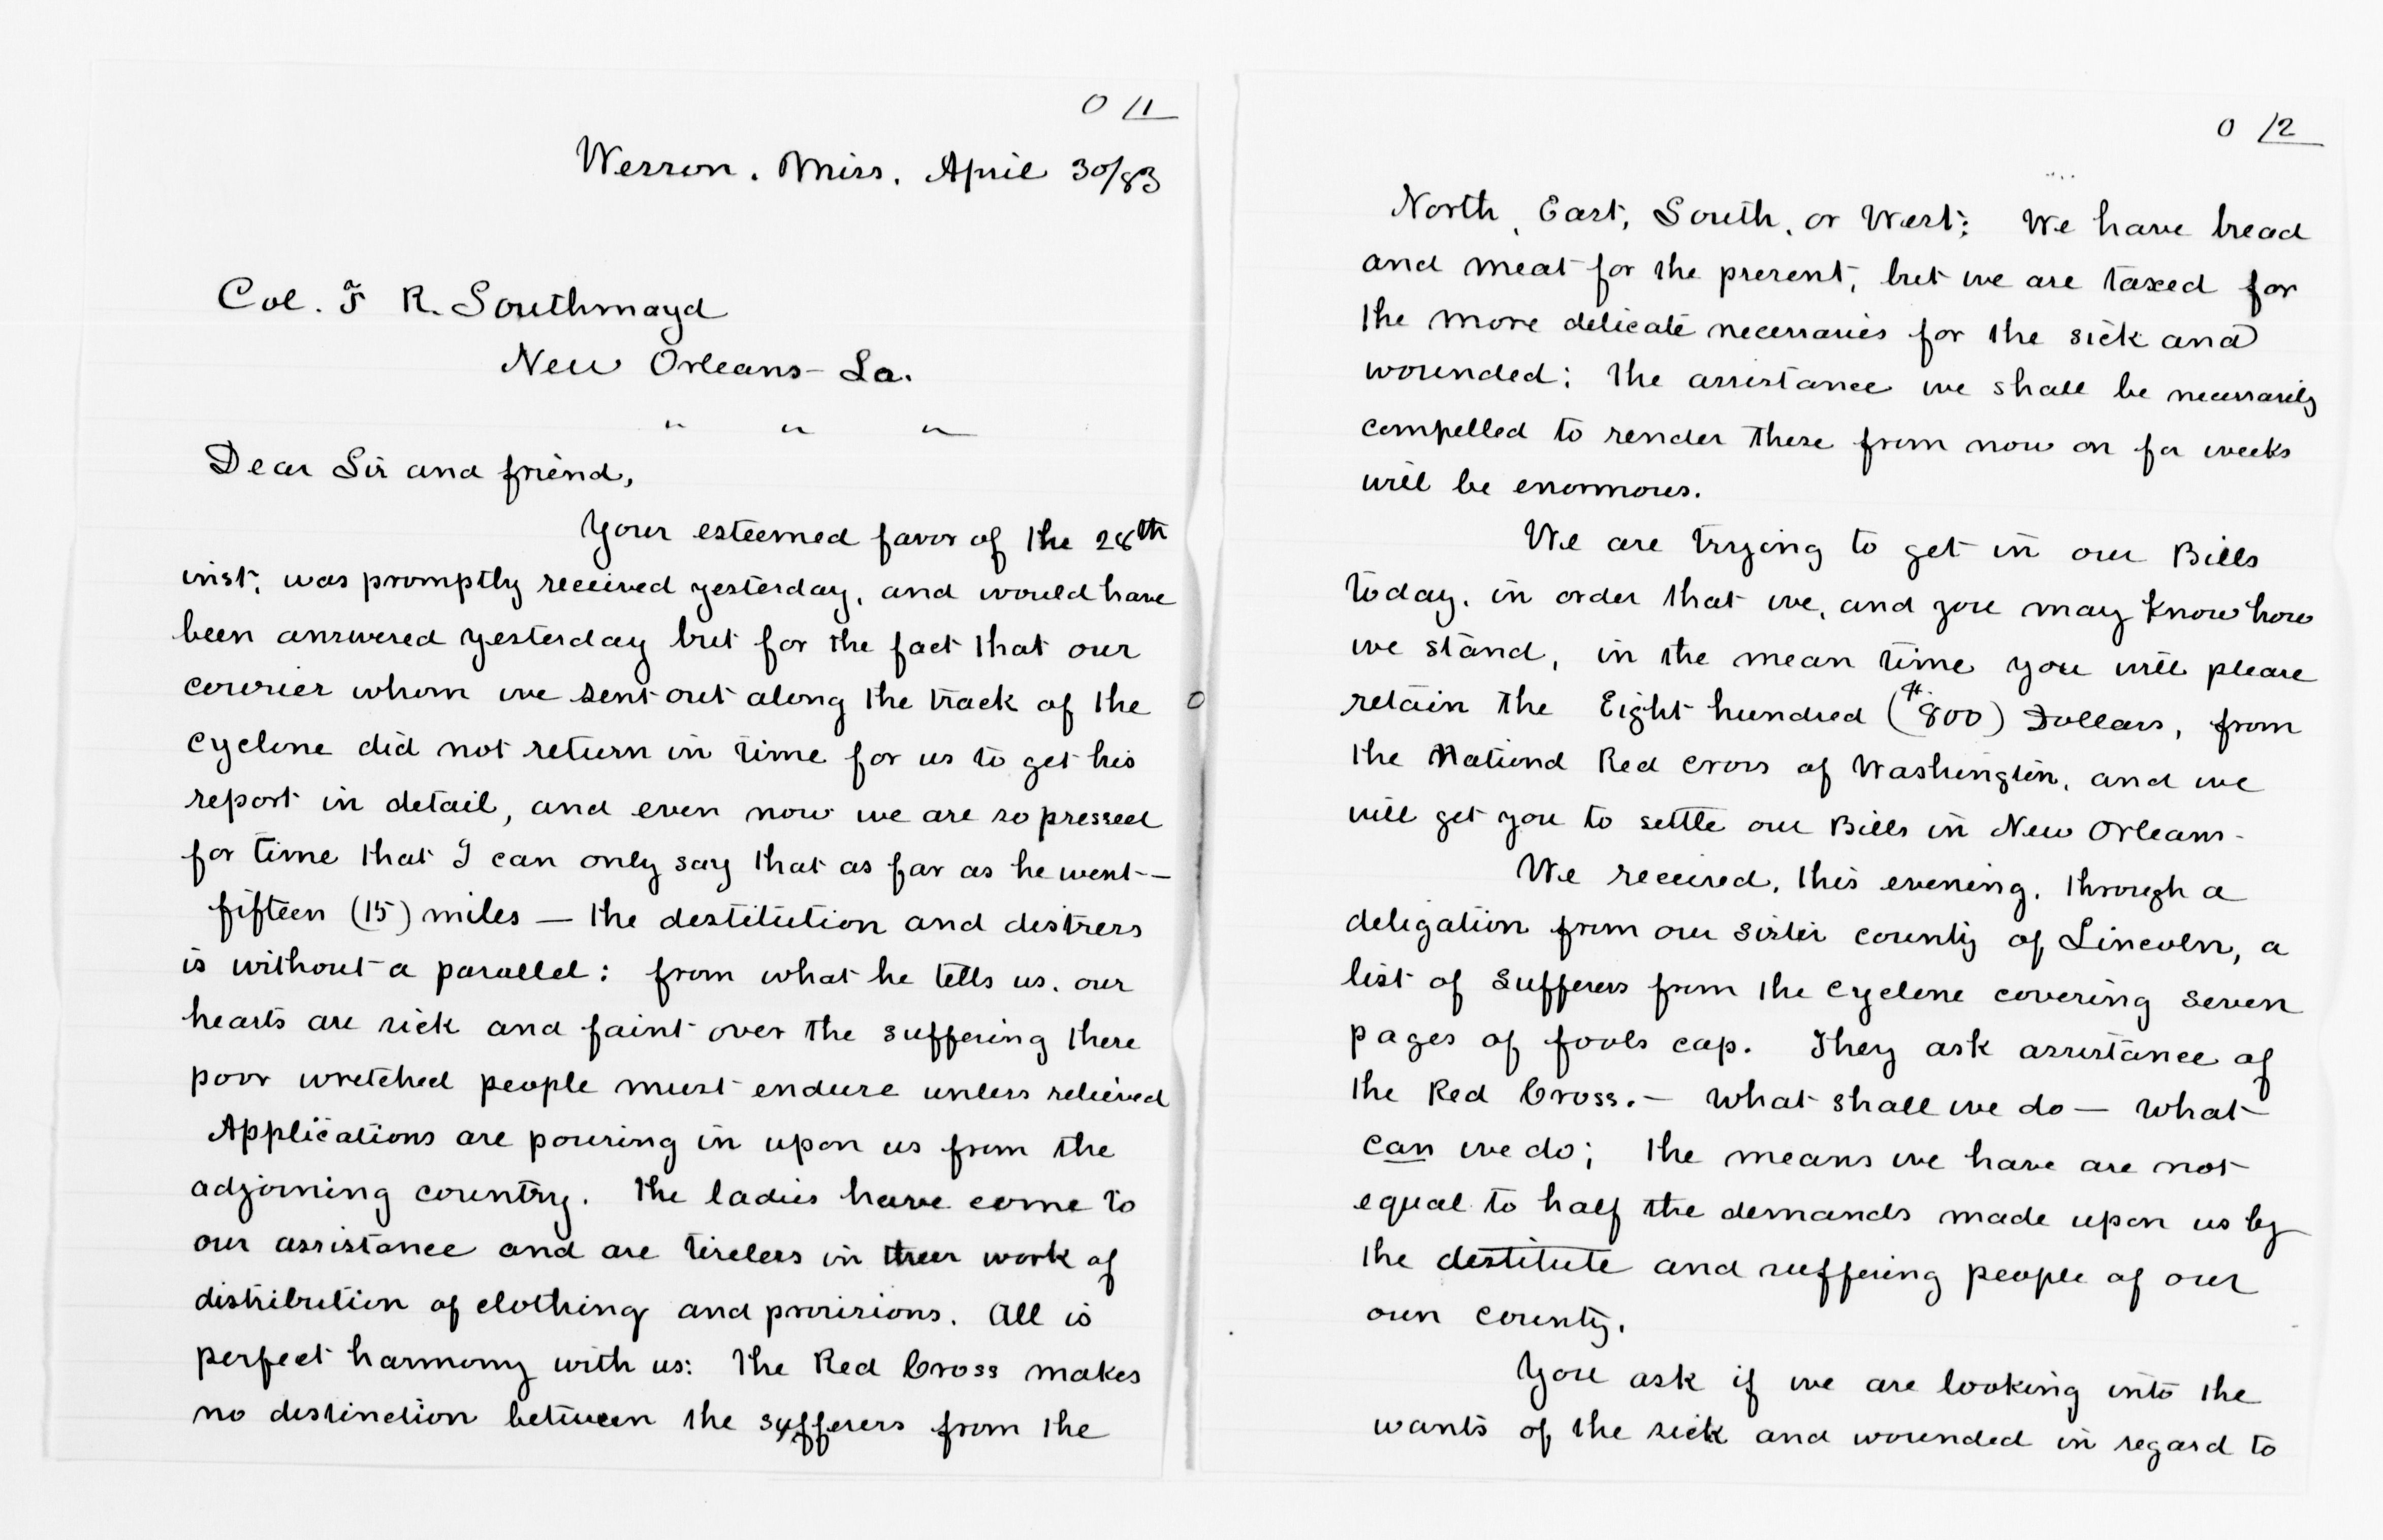 0 11
Wesson. Miss. April 30/83
Col. F R. Southmayd
New Orleans - La.
" " "
Dear Sir and friend,
Your esteemed favor of the 28th
inst. was promptly received yesterday, and would have
been answered yesterday but for the fact that our
courier whom we sent out along the track of the
cyclone did not return in time for us to get his
report in detail, and even now we are so pressed
for time that I can only say that as far as he went —
fifteen (15) miles — the destitution and distress
is without a parallel: from what he tells us. our
hearts are sick and faint over the suffering these
poor wretched people must endure unless relieved
Applications are pouring in upon us from the
adjoining country. The ladies have come to
our assistance and are tireless in their work of
distribution of clothing and provisions. All is
perfect harmony with us: The Red Cross makes
no distinction between the sufferers from the
0 12
North, East, South, or West: We have bread
and meat for the present, but we are taxed for
the more delicate necessaries for the sick and
wounded: the assistance we shall be necessarily
compelled to render these from now on for weeks
will be enormous.
We are trying to get in our Bills
today. in order that we, and you may know how
we stand, in the mean time you will please
retain the Eight hundred ($800) Dollars, from
the National Red Cross of Washington, and we
will get you to settle our Bills in New Orleans -
We received, this evening, through a
deligation from our sister county of Lincoln, a
list of Sufferers from the cyclone covering seven
pages of fools cap. They ask assistance of
the Red Cross. — What shall we do — What
can we do; the means we have are not
equal to half the demands made upon us by
the destitute and suffering people of our
own county.
You ask if we are looking into the
wants of the sick and wounded in regard to